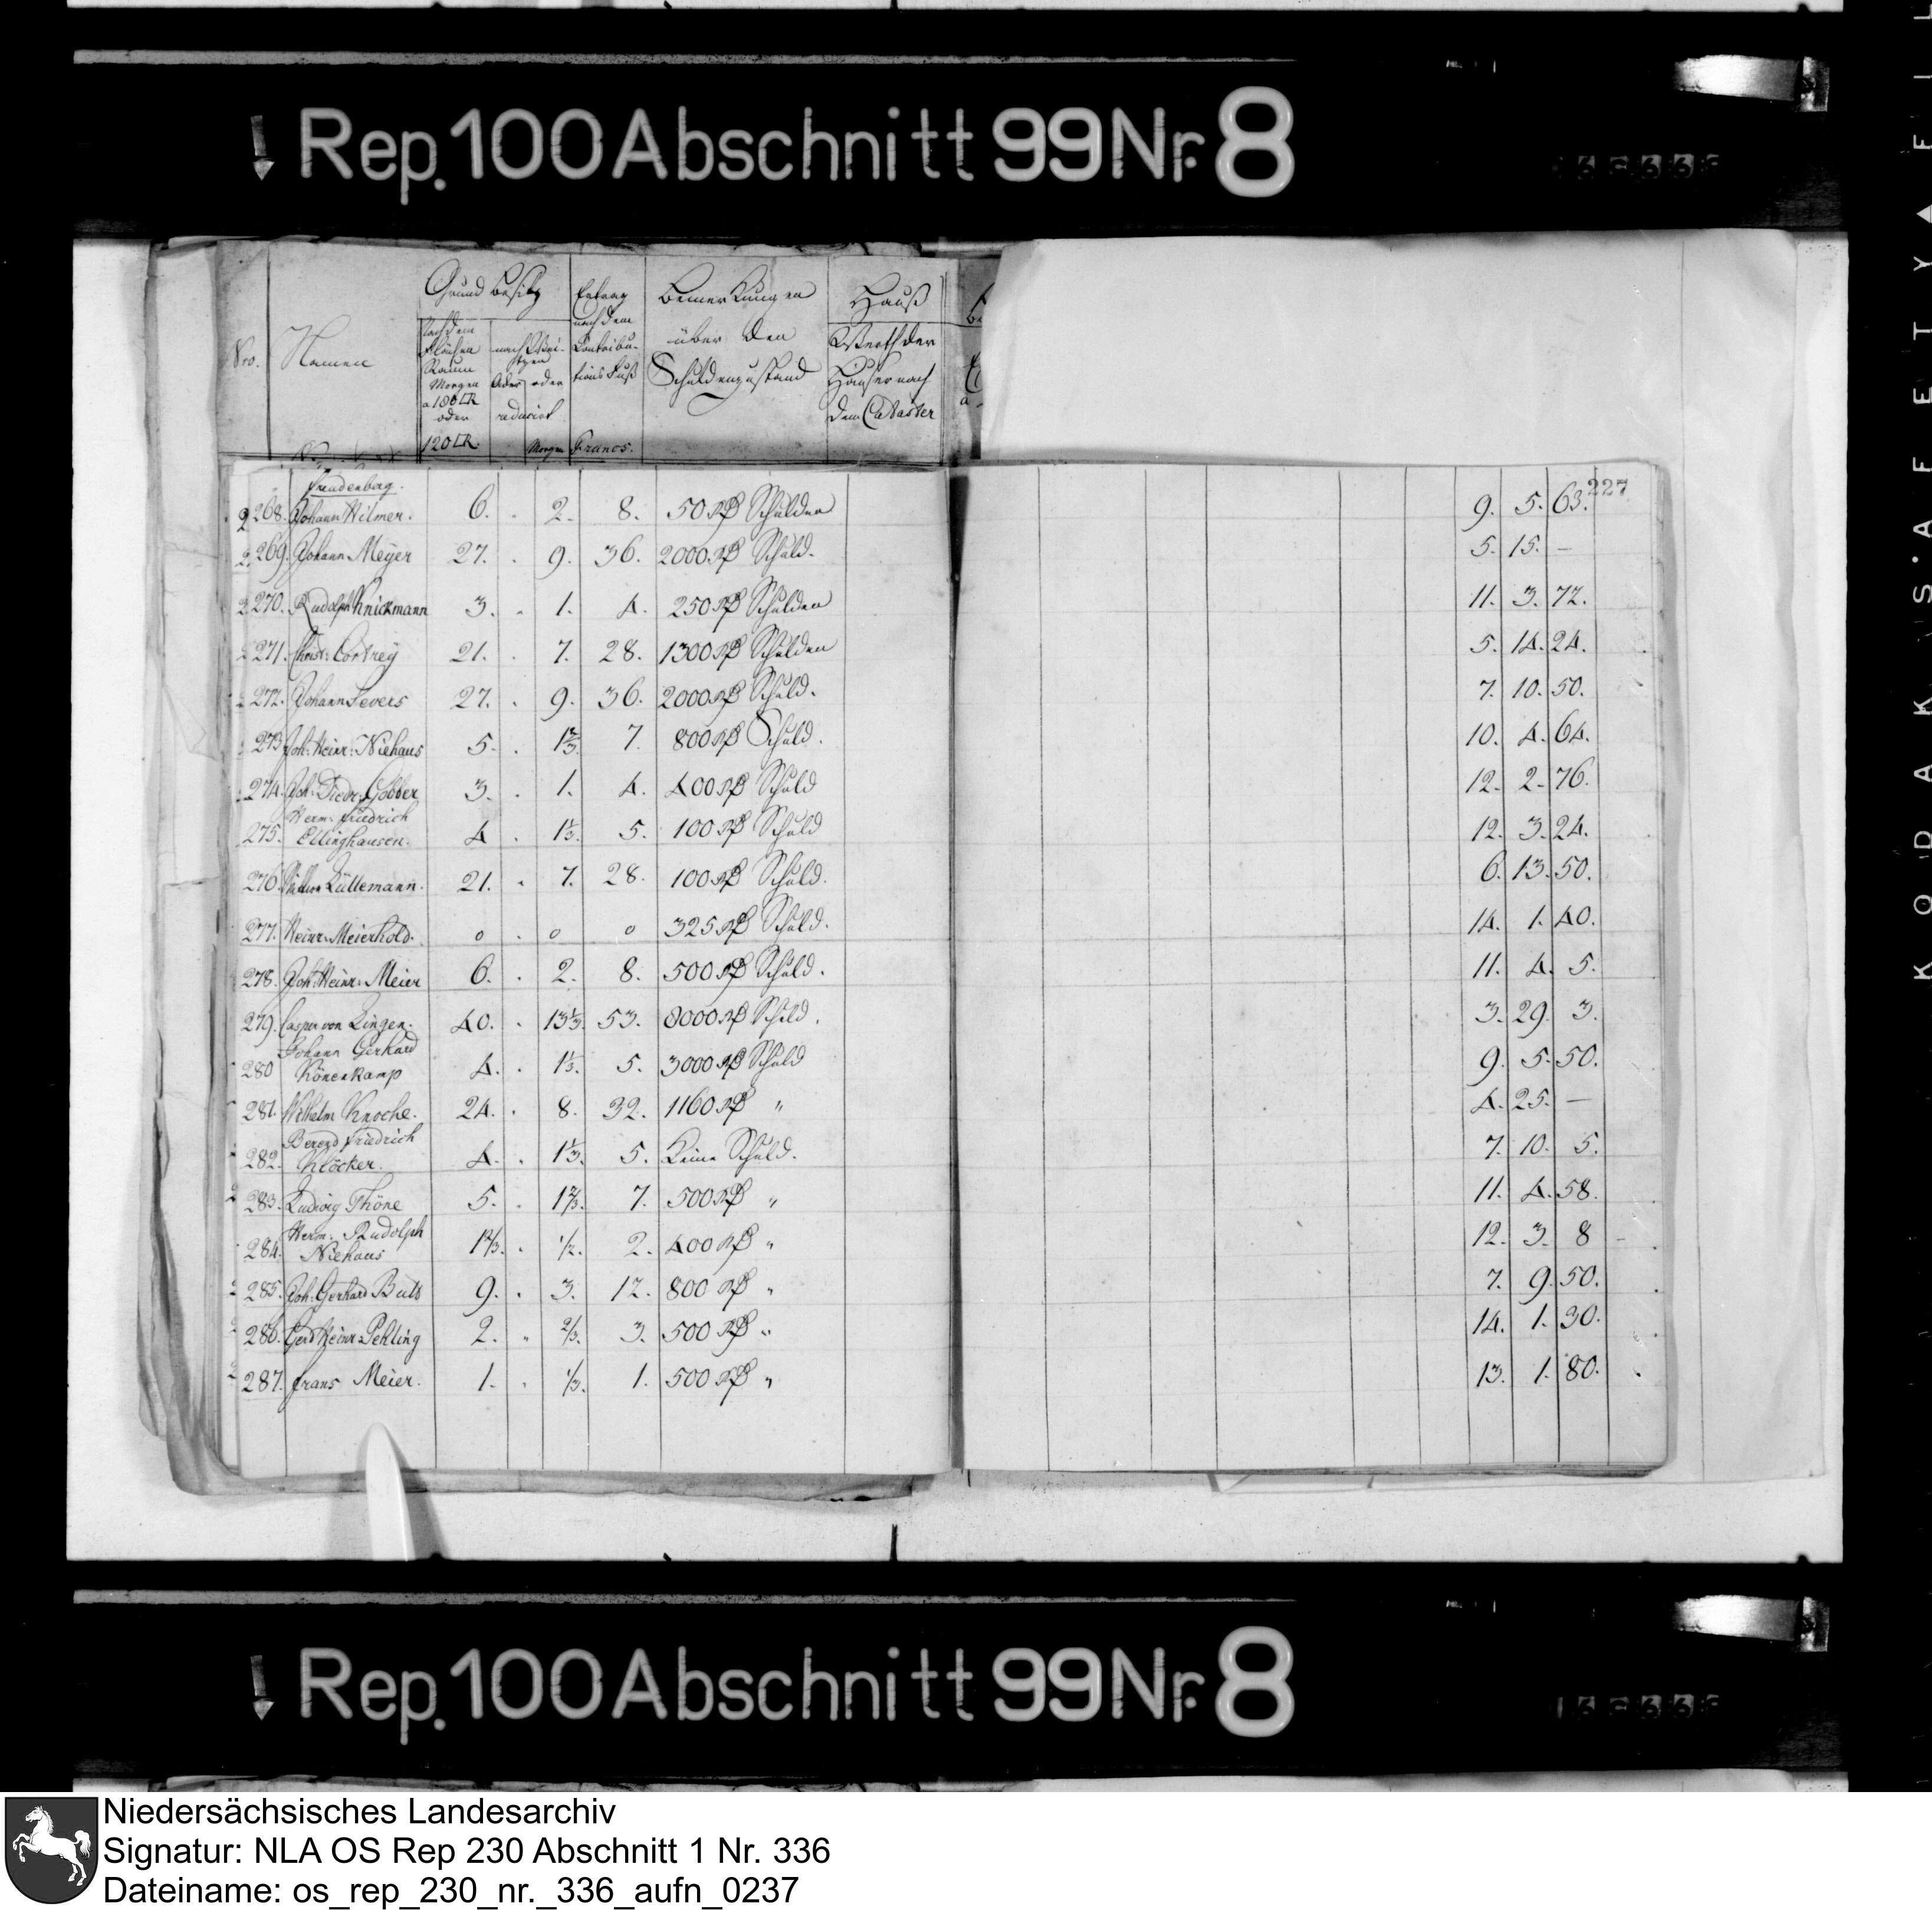 Rep. 100 Abschnitt 99 Nr. 8
Nro.
Namen
Grund besitz
nach dem Flächen Raum Morgen a 180 □R oder 120 □R.
oder reducirt Morgen
Ertrag nach dem Contribu-tions Fuß Francs.
Bemerkungen über den Schuldenzustand
Hauß
Werth der Häuser nach dem Cadaster
227
Freudenberg.
268. Johann Wilmer. 6. . 2. 8. 50 Rß Schulden 9. 5. 63.
269. Johann Meyer 27. . 9. 36. 2000 Rß Schuld. 5. 15. –
270. Rudolph Knickmann 3. . 1. 4. 250 Rß Schulden 11. 3. 72.
271. Christ: Cortrey 21. . 7. 28. 1300 Rß Schulden 5. 14. 24.
272. Johann Severs 27. . 9. 36. 2000 Rß Schuld. 7. 10. 50.
273. Joh: Heinr: Niehaus 5. . 1 2/3. 7. 800 Rß Schuld. 10. 4. 64.
274. Joh: Diedr: 3. . 1. 4. 400 Rß Schuld 12. 2. 76.
Herm: Friedrich
275. Ellinghausen. 4 . 1 1/3. 5. 100 Rß Schuld 12. 3. 24.
276. Lüllemann. 21. . 7. 28. 100 Rß Schuld. 6. 13. 50.
277. Heinr: Meierhold. 0 . 0 0 325 Rß Schuld. 14. 1. 40.
278. Joh: Heinr: Meier 6. . 2. 8. 500 Rß Schuld. 11. 4. 5.
279. Casper von Lingen. 40. . 13 1/3. 53. 8000 Rß Schuld. 3. 29. 3.
Johann Gerhard
280 Könenkamp 4. . 1 1/3. 5. 3000 Rß Schuld 9. 5. 50.
281. Wilhelm Knoche. 24. . 8. 32. 1160 Rß " 4. 25. –
Berend Friedrich
282. Klöcker. 4. . 1 1/3. 5. Keine Schuld. 7. 10. 5.
283. Ludwig Thöne 5. . 1 2/3. 7. 500 Rß " 11. 4. 58.
Herm: Rudolph
284. Niehaus 1 2/3. . 1/2. 2. 400 Rß " 12. 3. 8
285. Joh: Gerhard Buls 9. . 3. 12. 800 Rß " 7. 9. 50.
286. Gerd Heinr: Pehling 2. " 2/3. 3. 500 Rß " 14. 1. 30.
287. Frans Meier. 1. . 1/3. 1. 500 Rß " 13. 1. 80.
Rep. 100 Abschnitt 99 Nr. 8
KODAK SAFETY FIL
Niedersächsisches Landesarchiv
Signatur: NLA OS Rep 230 Abschnitt 1 Nr. 336
Dateiname: os_rep_230_nr._336_aufn_0237